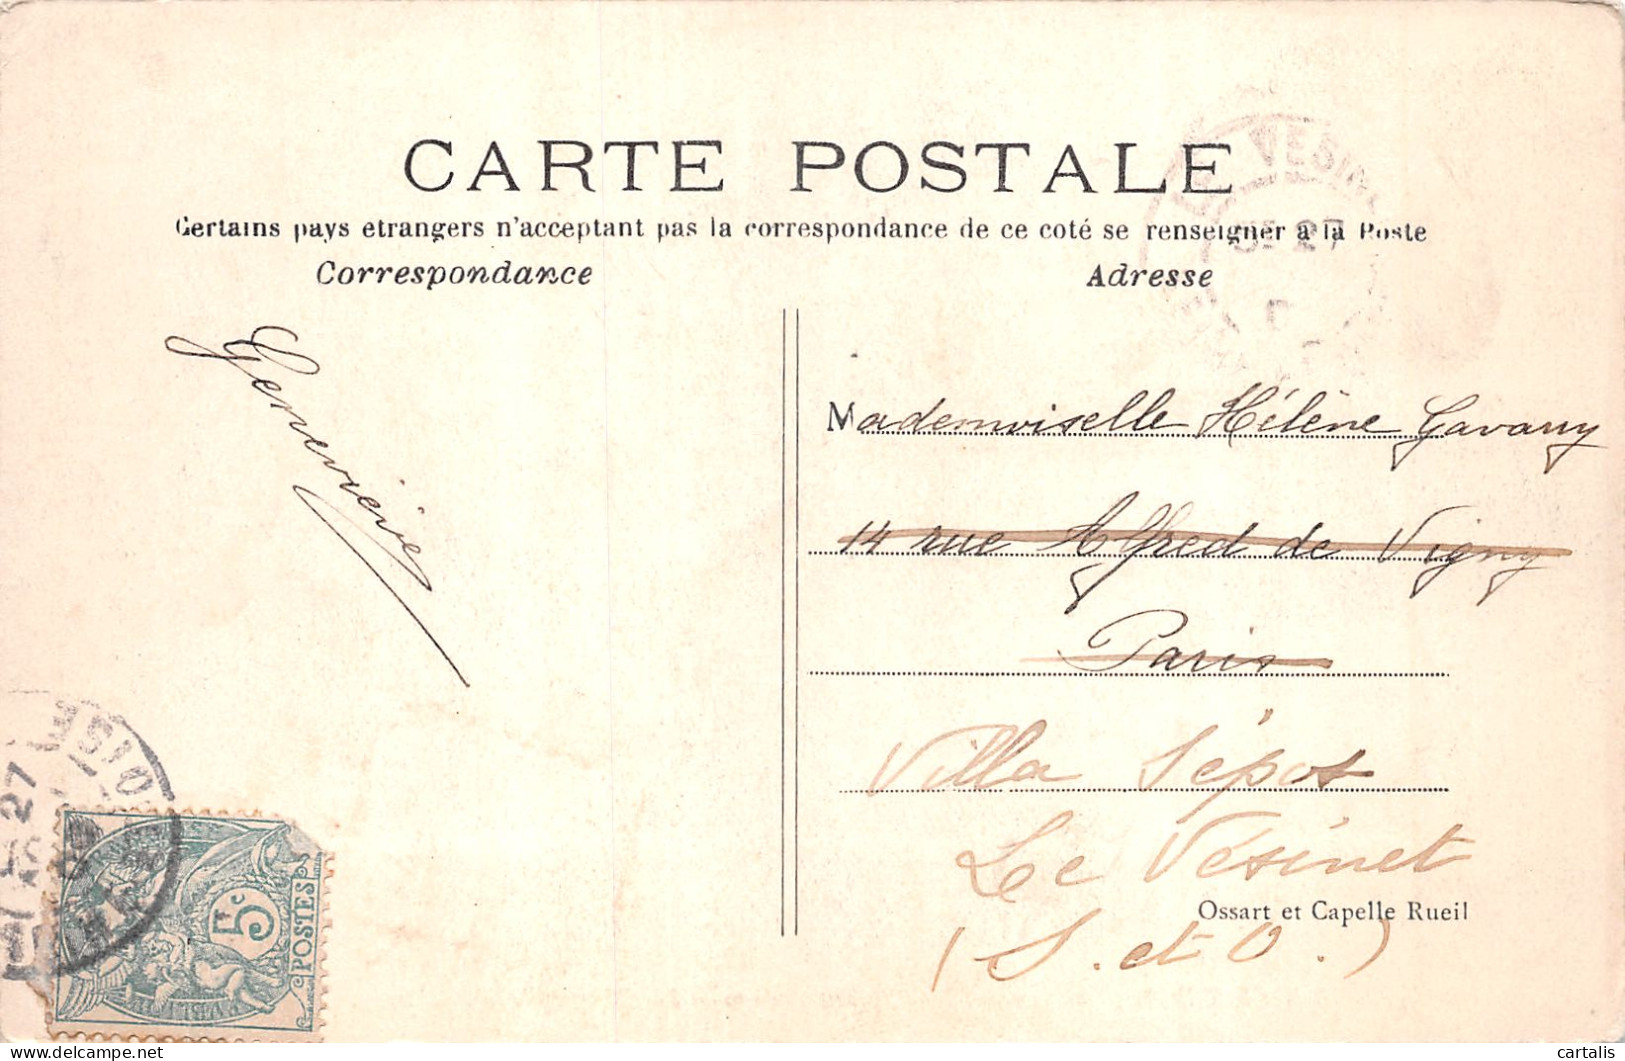 CARTE POSTALE
Certains pays etrangers n'acceptant pas la correspondance de ce coté se renseigner a la Poste
Correspondance
Adresse
Geneviève
Mademoiselle Hélène Gavarry
14 rue Alfred de Vigny
Paris
Villa Sépos
Le Vésinet
(S. et O.)
Ossart et Capelle Rueil
VESIN
27
OISE
27
5c
POSTES
cartalis